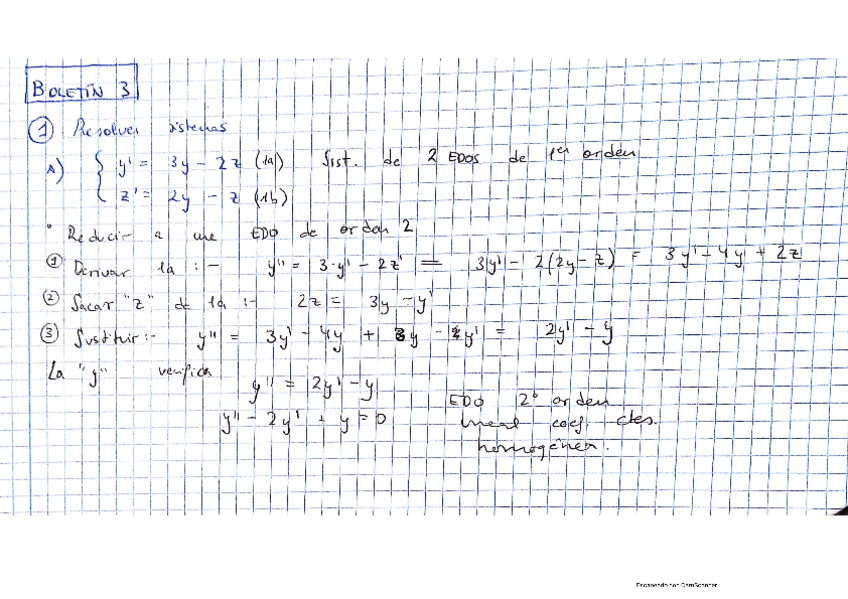 BOLETÍN 3
① Resolver sistemas
A) { y' = 3y - 2z (1a) Sist. de 2 EDOS de 1er orden
z' = 2y - z (1b)
• Reducir a una EDO de orden 2
① Derivar 1a :- y'' = 3·y' - 2z' = 3y' - 2(2y - z) = 3y' - 4y + 2z
② Sacar "z" de 1a :- 2z = 3y - y'
③ Sustituir :- y'' = 3y' - 4y + 3y - y' = 2y' - y
La "y" verifica
y'' = 2y' - y
EDO 2º orden
y'' - 2y' + y = 0
lineal coef. ctes.
homogénea.
Escaneado con CamScanner